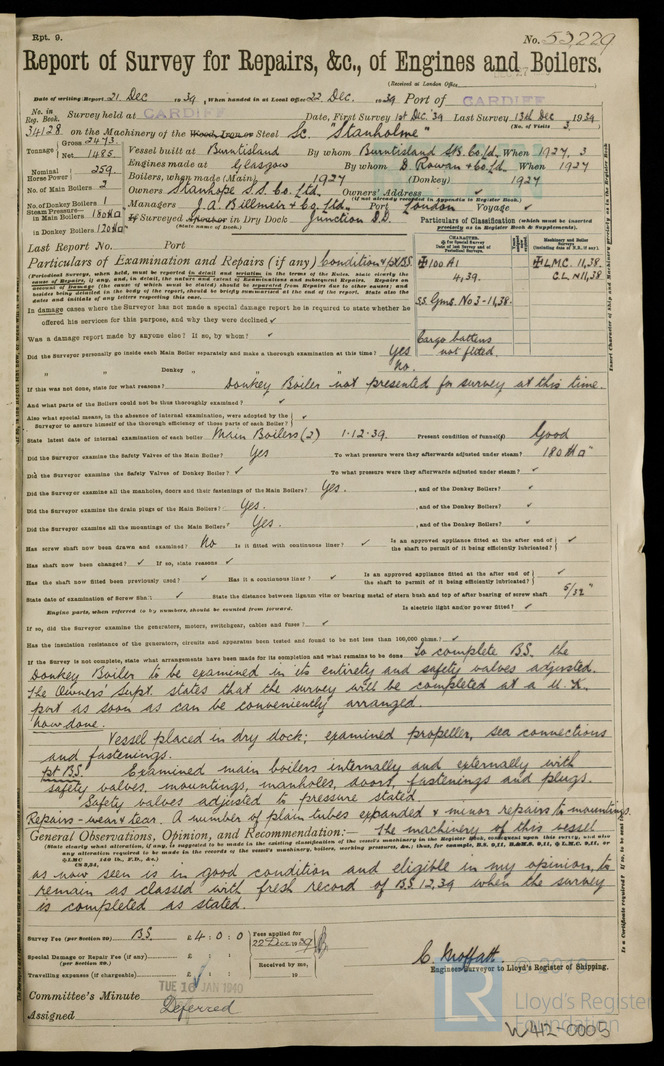 Rpt. 9.
No. 53229
Report of Survey for Repairs, &c., of Engines and Boilers.
(Received at London Office
Date of writing Report 21 Dec 1939, When handed in at Local Office 22 Dec. 1939 Port of CARDIFF
No. in Reg. Book. Survey held at CARDIFF Date, First Survey 1st Dec. 39 Last Survey 13th Dec 1939
(No. of Visits 3.)
34128 on the Machinery of the Wood, Iron or Steel Sc. "Stanholme"
Tonnage Gross 2473. Net 1485
Vessel built at Burntisland By whom Burntisland S.B. Co. Ld. When 1927, 3
Engines made at Glasgow By whom D. Rowan & Co. Ld. When 1927
Nominal Horse Power 259.
Boilers, when made (Main) 1927 (Donkey) 1927
No. of Main Boilers 2
Owners Stanhope S.S. Co. Ltd. Owners' Address ✓
(if not already recorded in Appendix to Register Book.)
No. of Donkey Boilers 1
Managers J.A. Billmeir & Co. Ltd. Port London Voyage ✓
Steam Pressure— in Main Boilers 180 lb
in Donkey Boilers 120 lb
If Surveyed Afloat or in Dry Dock Junction D.D.
(State name of Dock.)
Particulars of Classification (which must be inserted precisely as in Register Book).
Last Report No. Port
✠ 100 A1
4,39.
SS. Gms. No 3 - 11,38.
Cargo battens not fitted.
✠ L.M.C. 11,38.
C.L. N 11,38
Particulars of Examination and Repairs (if any) Condition & pt BS.
(Periodical Surveys, when held, must be reported in detail and seriatim in the terms of the Rules. State clearly the cause of Repairs, if any, and, in detail, the nature and extent of Examinations and subsequent Repairs. Repairs on account of Damage (the cause of which must be stated) should be separated from Repairs due to other causes; and besides being detailed in the body of the report, should be briefly summarised at the end of the report. State also the dates and initials of any letters respecting this case.
In damage cases where the Surveyor has not made a special damage report he is required to state whether he offered his services for this purpose, and why they were declined ✓
Was a damage report made by anyone else? If so, by whom? ✓
Did the Surveyor personally go inside each Main Boiler separately and make a thorough examination at this time? Yes
" " Donkey " " " No.
If this was not done, state for what reasons? Donkey Boiler not presented for survey at this time.
And what parts of the Boilers could not be thus thoroughly examined? ✓
Also what special means, in the absence of internal examination, were adopted by the Surveyor to assure himself of the thorough efficiency of those parts of each Boiler? ✓
State latest date of internal examination of each boiler Main Boilers (2) 1.12.39. Present condition of funnel(s) Good
Did the Surveyor examine the Safety Valves of the Main Boiler? Yes To what pressure were they afterwards adjusted under steam? 180 lb
Did the Surveyor examine the Safety Valves of Donkey Boiler? ✓ To what pressure were they afterwards adjusted under steam? ✓
Did the Surveyor examine all the manholes, doors and their fastenings of the Main Boilers? Yes. , and of the Donkey Boilers? ✓
Did the Surveyor examine the drain plugs of the Main Boilers? Yes. , and of the Donkey Boilers? ✓
Did the Surveyor examine all the mountings of the Main Boilers? Yes. , and of the Donkey Boilers? ✓
Has screw shaft now been drawn and examined? No Is it fitted with continuous liner? ✓ Is an approved appliance fitted at the after end of the shaft to permit of it being efficiently lubricated? ✓
Has shaft now been changed? ✓ If so, state reasons ✓
Has the shaft now fitted been previously used? ✓ Has it a continuous liner? ✓ Is an approved appliance fitted at the after end of the shaft to permit of it being efficiently lubricated? ✓
State date of examination of Screw Shaft ✓ State the distance between lignum vitæ or bearing metal of stern bush and top of after bearing of screw shaft 5/32"
Engine parts, when referred to by numbers, should be counted from forward. Is electric light and/or power fitted? ✓
If so, did the Surveyor examine the generators, motors, switchgear, cables and fuses? ✓
Has the insulation resistance of the generators, circuits and apparatus been tested and found to be not less than 100,000 ohms? ✓
If the Survey is not complete, state what arrangements have been made for its completion and what remains to be done To complete B.S. the
Donkey Boiler to be examined in its entirety and safety valves adjusted.
The Owners' Supt. states that the survey will be completed at a U.K.
port as soon as can be conveniently arranged.
Now done.
Vessel placed in dry dock; examined propeller, sea connections
and fastenings.
pt BS. Examined main boilers internally and externally with
safety valves, mountings, manholes, doors, fastenings and plugs.
Safety valves adjusted to pressure stated.
Repairs - wear & tear. A number of plain tubes expanded & minor repairs to mountings.
General Observations, Opinion, and Recommendation:— The machinery of this vessel
as now seen is in good condition and eligible in my opinion, to
remain as classed with fresh record of BS 12,39 when the survey
is completed as stated.
Survey Fee (per Section 29) BS. £4 : 0 : 0
Fees applied for 22 Dec 1939
Special Damage or Repair Fee (if any) (per Section 29.) £ : :
Received by me,
Travelling expenses (if chargeable) £ : :
19
C. Moffatt.
Engineer Surveyor to Lloyd's Register of Shipping.
Committee's Minute TUE 16 JAN 1940
Assigned Deferred
© 2019
LR
Lloyd's Register
Foundation
W412-0005